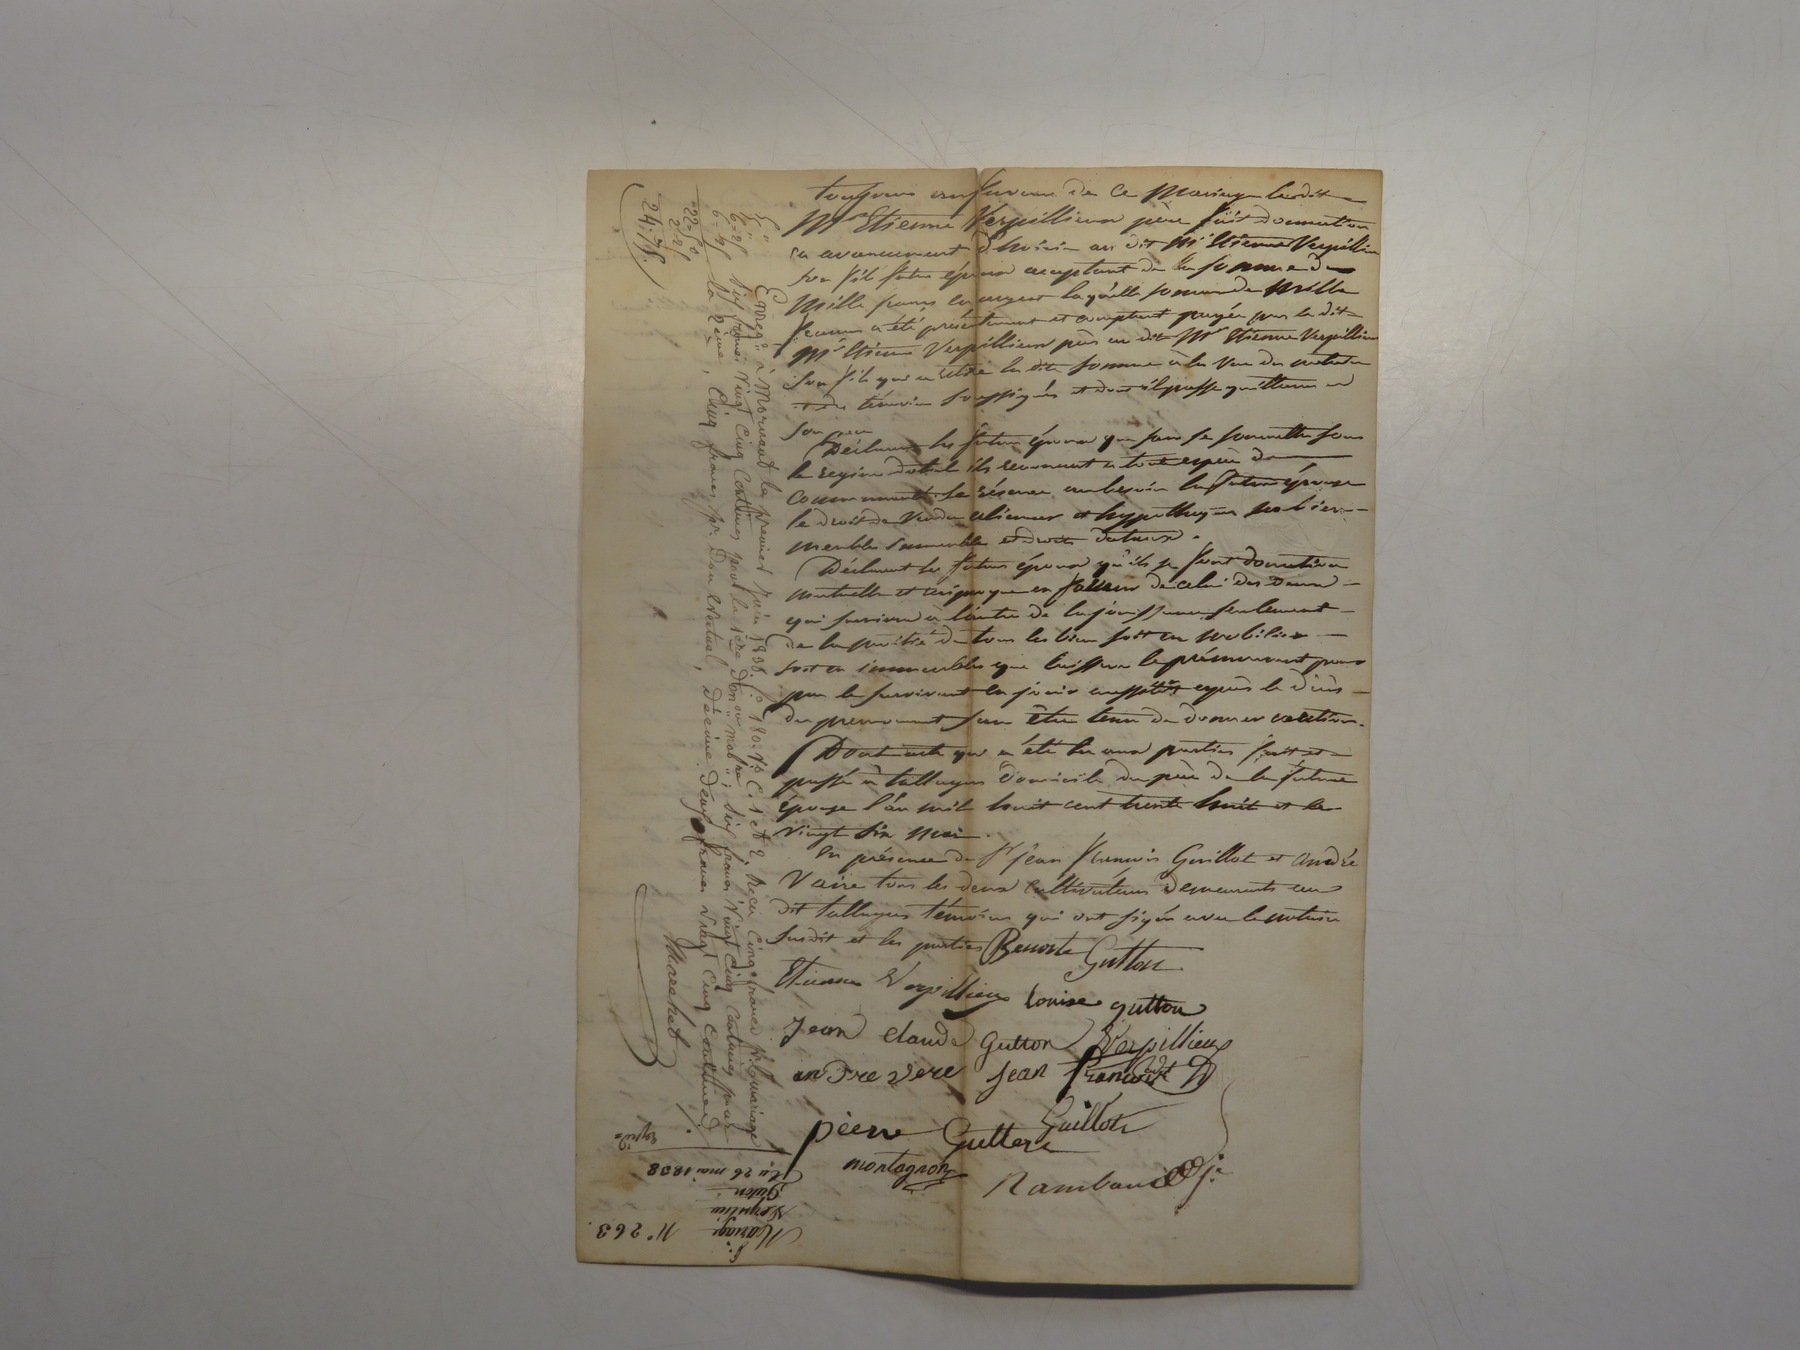 toujours en faveur de ce Mariage ledit
Mr Etienne Verpillieux père fait donation
en avancement d'hoirie au dit Mr Etienne Verpillieux
son fils futur époux acceptant de la somme de
Mille francs en argent laquelle somme de Mille
francs a été présentement et comptant payée par le dit
Mr Etienne Verpillieux père au dit Mr Etienne Verpillieux
son fils qui a retiré la dite somme à la vue du notaire
et des témoins soussignés et dont il passe quittance au
son père
Déclarent les futurs époux que sans se soumettre sous
le regime dotal ils renoncent a toute espèce de
communauté se réserve au besoin la future épouse
le droit de vendre aliener et hypothéquer ses biens
meubles immeubles et droits dotaux.
Déclarent les futurs époux qu'ils se font donation
mutuelle et réciproque en faveur de celui des deux
qui survivra à l'autre de la jouissance seulement
de la moitié de tous les biens soit en mobilier
soit en immeubles que laissera le prémourant pour
par le survivant en jouir aussitôt après le décès
du premourant sans être tenu de donner caution.
Dont acte qui a été lu aux parties fait et
passé à talluyers domicile du père de la future
épouse l'an mil huit cent trente huit et le
vingt six mai.
En présence de Sr jean François Guillot et André
Vaire tous les deux cultivateurs demeurants au
dit talluyers témoins qui ont signé avec le notaire
susdit et les parties Benoite Gutton
Etienne Verpillieux louise gutton
Jean claude Gutton Verpillieux
andre vere jean François
Guillot
pierre Gutton
montagnon
Rambaud
Enregé à Mornant le premier juin 1838. fo 180 Vo C. 1 et 2 reçu cinq francs pr mariage
six francs vingt cinq centimes pour la 1ère Don on mob.; six francs vingt cinq centimes pour
la 2ème, Cinq francs pr. Don éventuel, décime deux francs vingt cinq centimes
Marchet
5"
5"
6=25
6=25
22=50
2=25
24.75
No 263.
Mariage
Verpilieu
Guton
Du 26 mai 1838
Expédié